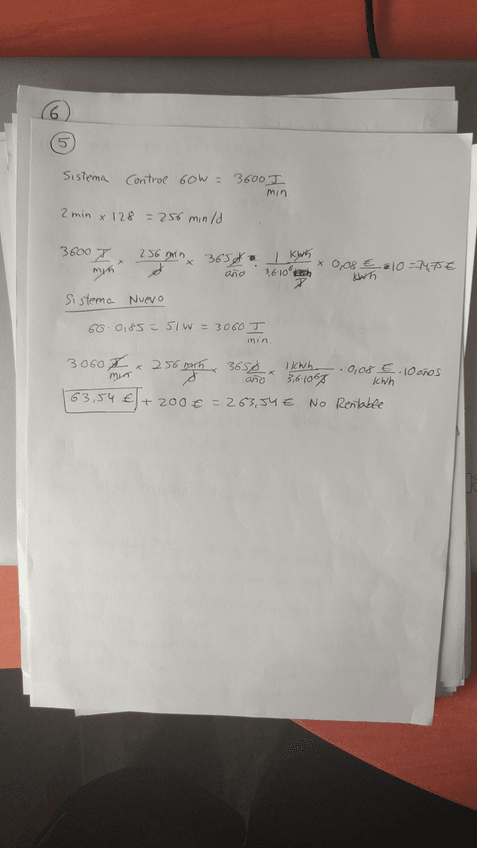 6
5
Sistema Control 60W = 3600 J/min
2min x 128 = 256 min/d
3600 J/min x 256 min/d x 365 d/año · 1 kWh/3,6·10⁶ J x 0,08 €/kWh · 10 = 74,75 €
Sistema Nuevo
60·0,85 = 51W = 3060 J/min.
3060 J/min x 256 min/d x 365 d/año x 1 kWh/3,6·10⁶ J · 0,08 €/kWh · 10 años
63,54 € + 200 € = 263,54 € No Rentable